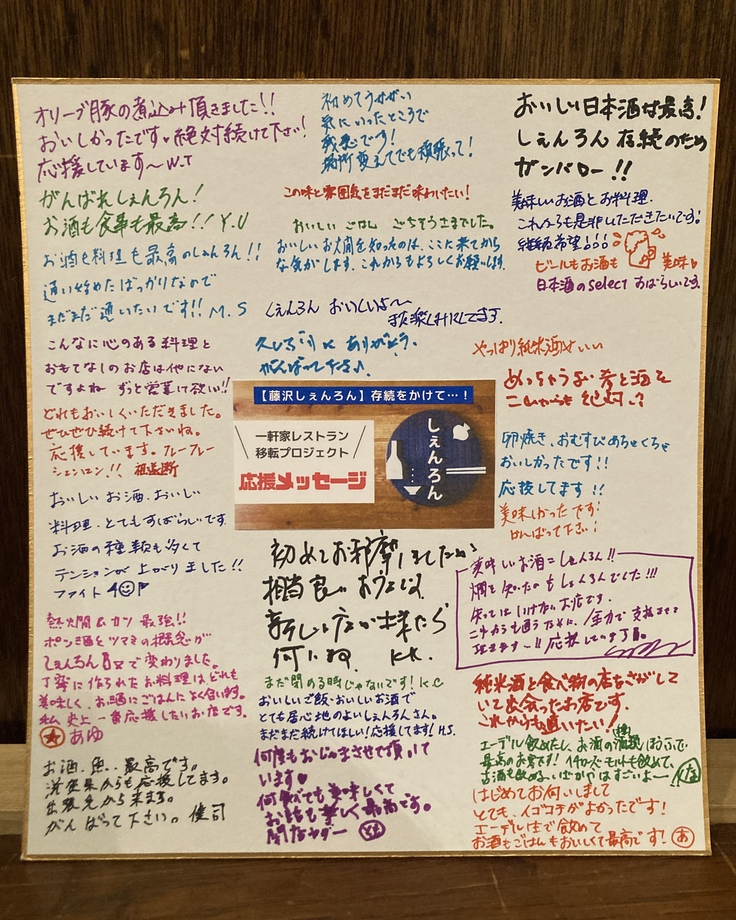 オリーブ豚の煮込み頂きました!!
おいしかったです。絶対続けて下さい!
応援しています〜W.T
がんばれしぇんろん!
お酒も食事も最高!! Y.U
お酒も料理も最高のしぇんろん!!
通い始めたばっかりなので
まだまだ通いたいです!! M.S
こんなに心のある料理と
おもてなしのお店は他にない
ですよね ずっと営業して欲しい!!
どれもおいしくいただきました。
ぜひぜひ続けて下さいね。
応援しています。フレーフレー
シェンロン!!
おいしいお酒、おいしい
料理、とてもすばらしいです
お酒の種類も多くて
テンションが上がりました!!
ファイト
熱燗ムカツ最強!!
ポン酒とツマミの概念が
しぇんろんさんで変わりました。
丁寧に作られたお料理はどれも
美味しく、お酒にごはんによく合います。
私史上一番応援したいお店です。
あゆ
お酒、魚、最高です。
滋賀県からも応援してます。
出張先から来ます。
がんばって下さい。 健司
初めてうかがい
気にいったところで
残念です!
場所変えてでも頑張って!
この味と雰囲気をまだまだ味わいたい!
おいしい ごはん ごちそうさまでした。
おいしいお燗を知ったのは、ここに来てから
な気がします。これからもよろしくお願いします。
しぇんろん おいしいよ〜
また楽しみにしてます。
久しぶりに ありがとう。
がんばって
【藤沢しぇんろん】存続をかけて…!
一軒家レストラン
移転プロジェクト
応援メッセージ
しぇんろん
初めてお邪魔しましたが
相当良いお店では
新しい店が出来たら
何いね K.K.
まだ閉める時じゃないです! K.C
おいしいご飯・おいしいお酒で
とても居心地のよいしぇんろんさん。
まだまだ続けてほしい!応援してます! H.S.
何度もおじゃまさせて頂いて
います♥
何食べても美味しくて
お話も楽しく最高です。
閉店ヤダー
おいしい日本酒は最高!
しぇんろん 存続のため
ガンバロー!!
美味しいお酒とお料理、
これからも是非いただきたいです!
継続希望!!!
ビールもお酒も 美味♥
日本酒のselectすばらしいです
やっぱり純米酒はいい
めっちゃうまい肴と酒を
これからも絶対!?
卵焼き、おむすびめちゃくちゃ
おいしかったです!!
応援してます!!
美味しかったです!
がんばって下さい!
美味しいお酒=しぇんろん!!
燗を知ったのもしぇんろんでした!!!
失ってはいけないお店です。
これからも通うために、全力で支えさせて
頂きます〜!! 応援しています。
純米酒と食べ物の店をさがして
いて出会ったお店です。
これからも通いたい!
エーデル飲めたし、お酒の種類ほうふで、
最高のお店です!
古酒も飲める すごいよ〜
はじめてお伺いしまして
とても、イゴコチがよかったです!
エーデル生で飲めて
お酒もごはんもおいしくて最高です! あ